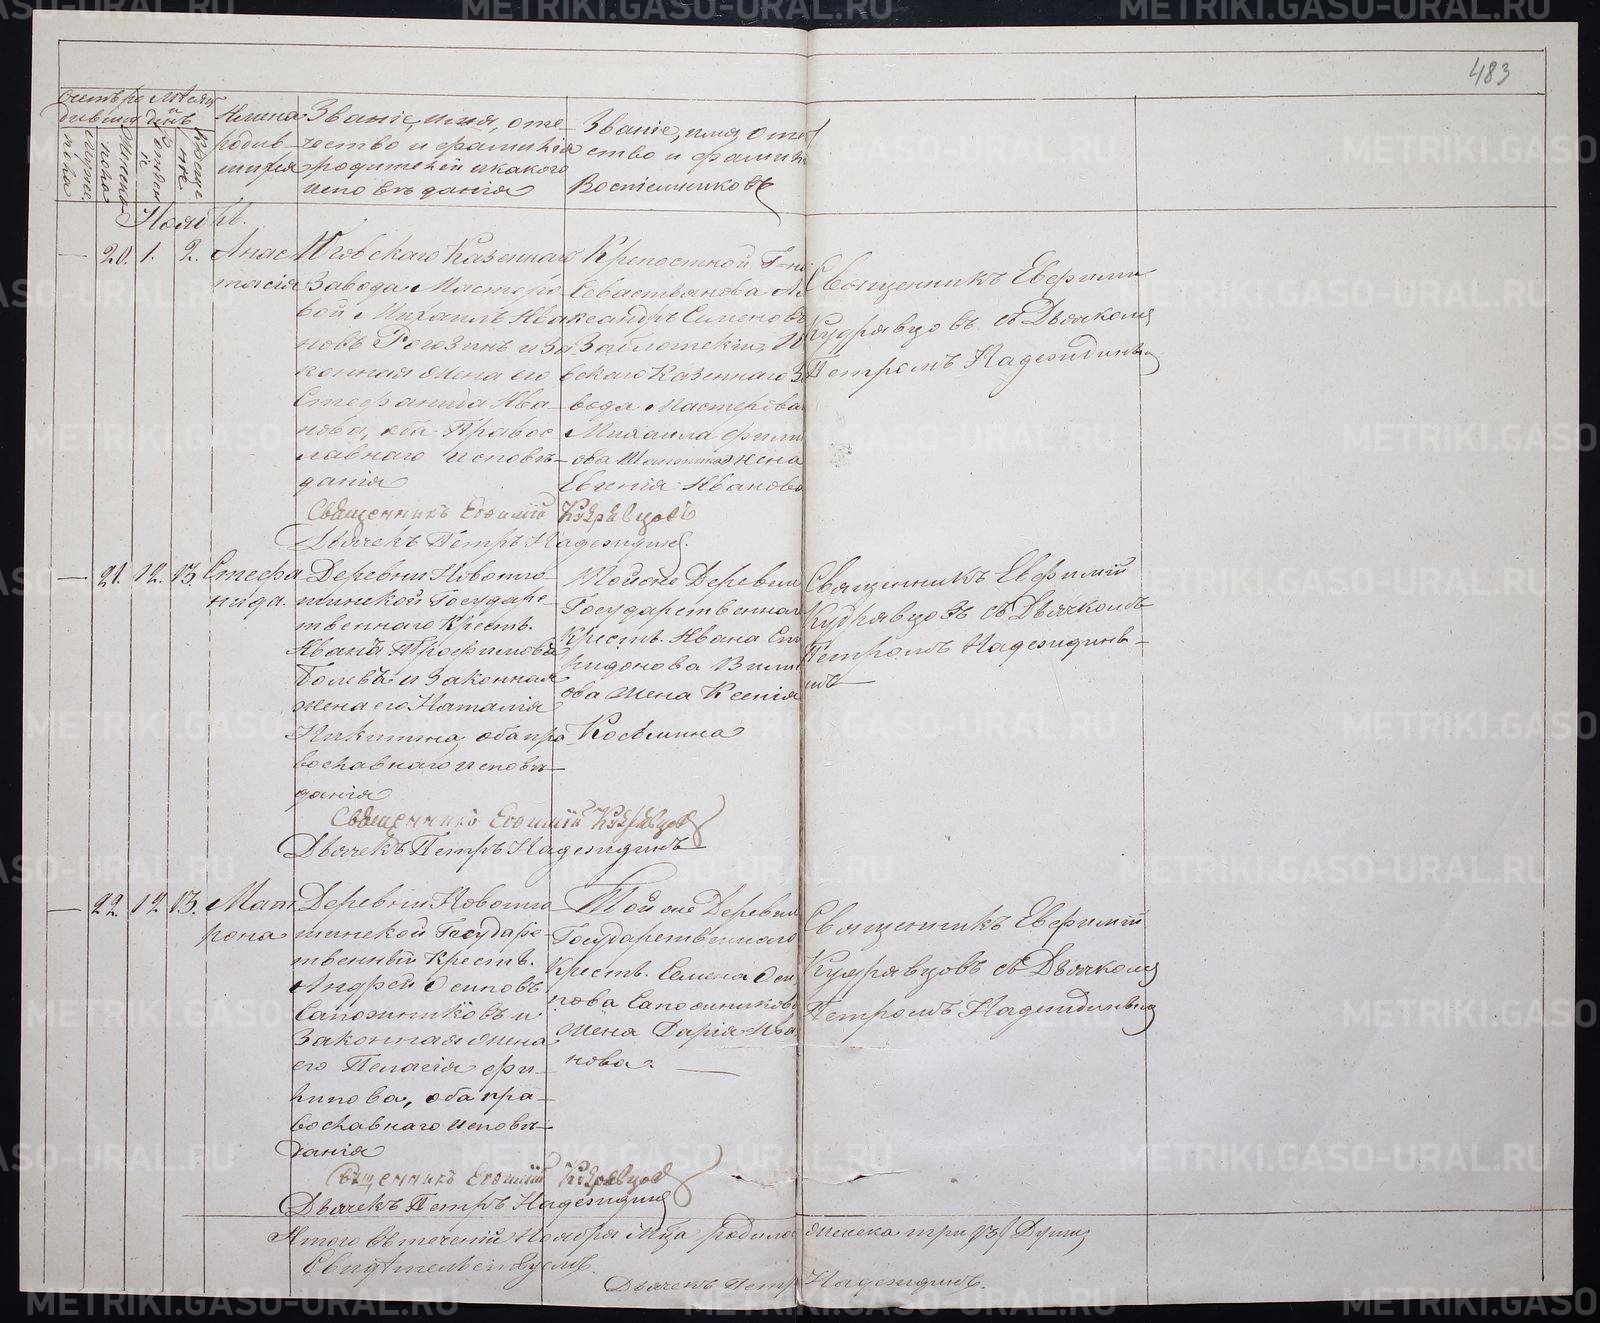 483
Счетъ ро
дившихся
Мѣсяцъ
и
день
Мужеска
пола
Женска
Рожденія
Крещенія
Имена
родив-
шихся
Званіе, имя, оте-
чество и фамилія
родителей и какого
исповѣданія
Званіе, имя, оте-
ство и фамилія
Воспріемниковъ
Ноябрь.
— 20. 1. 2.
Анас
тасія
Юговскаго Казеннаго
Завода Мастеро
вой Михаилъ Ива
новъ Рогозинъ и За
конная жена его
Стефанида Ива-
нова, оба Правос
лавнаго исповѣ-
данія
Крепостной Г=на
Севастьянова Але
ксандръ Семеновъ
Заблотскій, Юго
вскаго Казеннаго За
вода Мастероваго
Михаила Филип
ова жена
Евгенія Иванова
Священникъ Евфимій
Кудрявцовъ съ Дьячкомъ
Петромъ Надеждинымъ
Священникъ Евѳимій Кудрявцовъ
Дьячекъ Петръ Надеждинъ.
— 21. 12. 13.
Стефа
нида.
Деревни Новопло
тинской Государс-
твеннаго Кресть.
Иванъ Трофимовъ
Болевъ и Законная
жена его Наталія
Никитина, оба пра
вославнаго исповѣ-
данія
Той же Деревни
Государственнаго
Кресть. Ивана Спи
ридонова
жена Ксенія
Козьмина
Священникъ Евфимій
Кудрявцовъ съ Дьячкомъ
Петромъ Надеждины-
мъ
Священникъ Евѳимій Кудрявцовъ
Дьячекъ Петръ Надеждинъ
— 22. 12. 13.
Мат
рона
Деревни Новопло
тинской Государс-
твенный Кресть.
Андрей Осиповъ
Сапожниковъ и
Законная жена
его Пелагія Фи-
липова, оба пра-
вославнаго исповѣ-
данія
Той же Деревни
Государственнаго
Кресть. Семена Оси
пова Сапожникова
жена Дарія Ива
нова. —
Священникъ Евфимій
Кудрявцовъ съ Дьячкомъ
Петромъ Надеждинымъ
Священникъ Евѳимій Кудрявцовъ
Дьячекъ Петръ Надеждинъ
Итого въ теченіи Ноября М-ца родилось женска три /3/ Души
Свидѣтельствуемъ.
Дьячекъ Петръ Надеждинъ.
METRIKI.GASO-URAL.RU